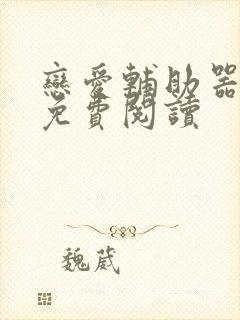 戀愛輔助器
免費閱讀
魏葳